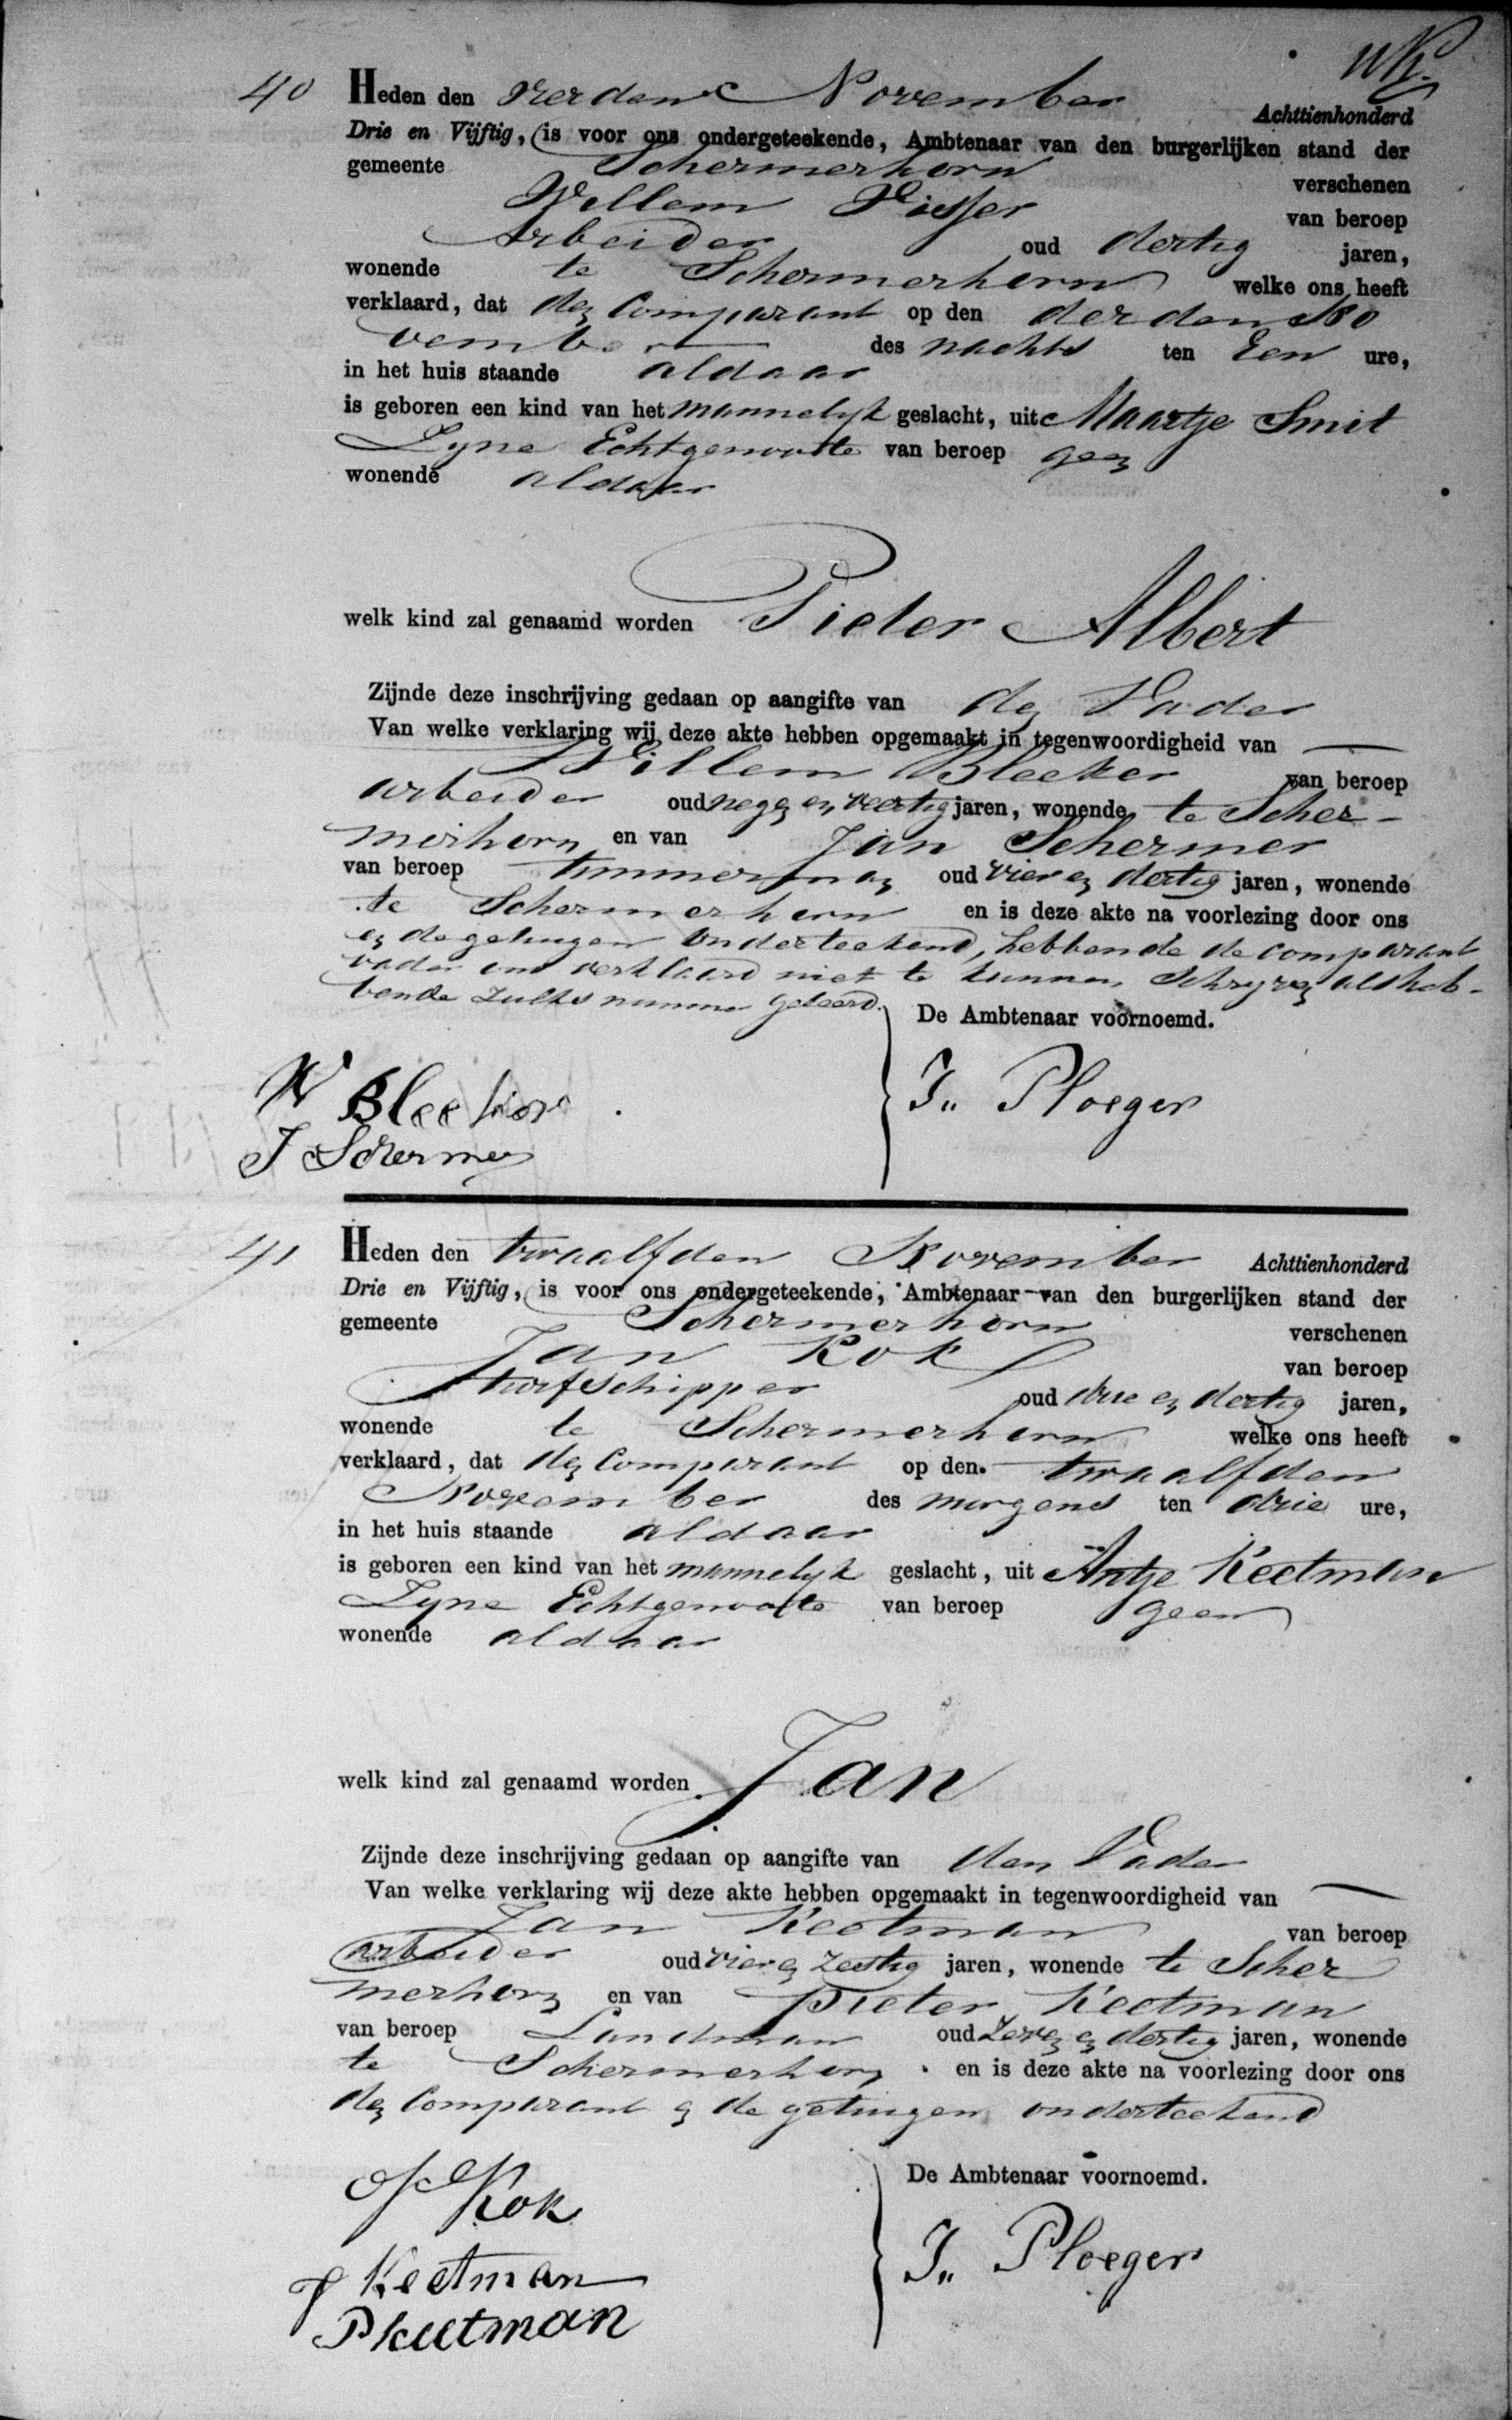 WK
40 Heden den vierden November Achttienhonderd
Drie en Vijftig, is voor ons ondergeteekende, Ambtenaar van den burgerlijken stand der
gemeente Schermerhorn verschenen
Willem Visser van beroep
Arbeider oud dertig jaren,
wonende te Schermerhorn welke ons heeft
verklaard, dat den Comparant op den derden No
vember des nachts ten Een ure,
in het huis staande aldaar
is geboren een kind van het mannelyk geslacht, uit Maartje Smit
Zyne Echtgenoote van beroep geen
wonende aldaar
welk kind zal genaamd worden Pieter Albert
Zijnde deze inschrijving gedaan op aangifte van den Vader
Van welke verklaring wij deze akte hebben opgemaakt in tegenwoordigheid van
Willem Bleeker van beroep
arbeider oud negen en veertig jaren, wonende te Scher-
merhorn en van Jan Schermer
van beroep timmerman oud vier en dertig jaren, wonende
te Schermerhorn en is deze akte na voorlezing door ons
en de getuigen onderteekend, hebbende de comparant
vader ons verklaard niet te kunnen Schryven als heb-
bende zulks nimmer geleerd.
De Ambtenaar voornoemd.
W Bleeker
J Schermer
Jn Ploeger
41 Heden den twaalfden November Achttienhonderd
Drie en Vijftig, is voor ons ondergeteekende, Ambtenaar van den burgerlijken stand der
gemeente Schermerhorn verschenen
Jan Kok van beroep
turfschipper oud drie en dertig jaren,
wonende te Schermerhorn welke ons heeft
verklaard, dat den Comparant op den twaalfden
November des morgens ten drie ure,
in het huis staande aldaar
is geboren een kind van het mannelyk geslacht, uit Antje Keetman
Zyne Echtgenoote van beroep geen
wonende aldaar
welk kind zal genaamd worden Jan
Zijnde deze inschrijving gedaan op aangifte van den Vader
Van welke verklaring wij deze akte hebben opgemaakt in tegenwoordigheid van
Jan Keetman van beroep
arbeider oud vier en zestig jaren, wonende te Scher
merhorn en van Pieter Keetman
van beroep Landman oud Zeven en dertig jaren, wonende
te Schermerhorn en is deze akte na voorlezing door ons
den Comparant en de getuigen onderteekend
De Ambtenaar voornoemd.
J Kok
J Keetman
P keetman
Jn Ploeger